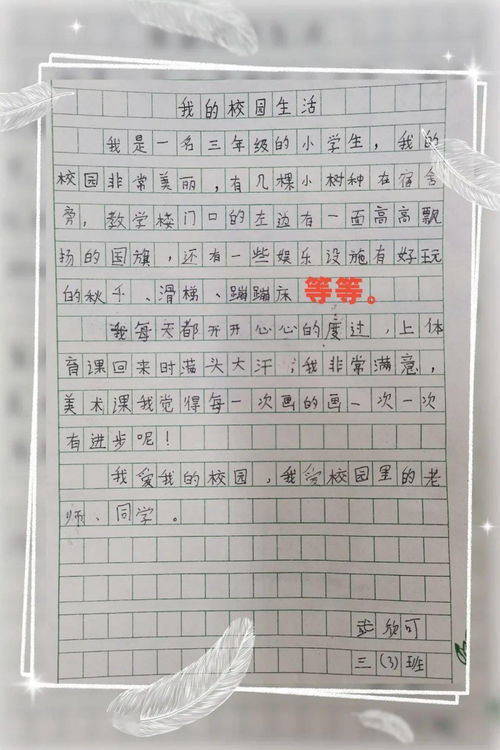 我的校园生活
我是一名三年级的小学生，我的
校园非常美丽，有几棵小树种在宿舍
旁，教学楼门口的左边有一面高高飘
扬的国旗，还有一些娱乐设施有好玩
的秋千、滑梯、蹦蹦床等等。
我每天都开开心心的度过，上体
育课回来时满头大汗；我非常满意，
美术课我觉得每一次画的画一次一次
有进步呢！
我爱我的校园，我爱校园里的老
师、同学。
欣可
三(3)班